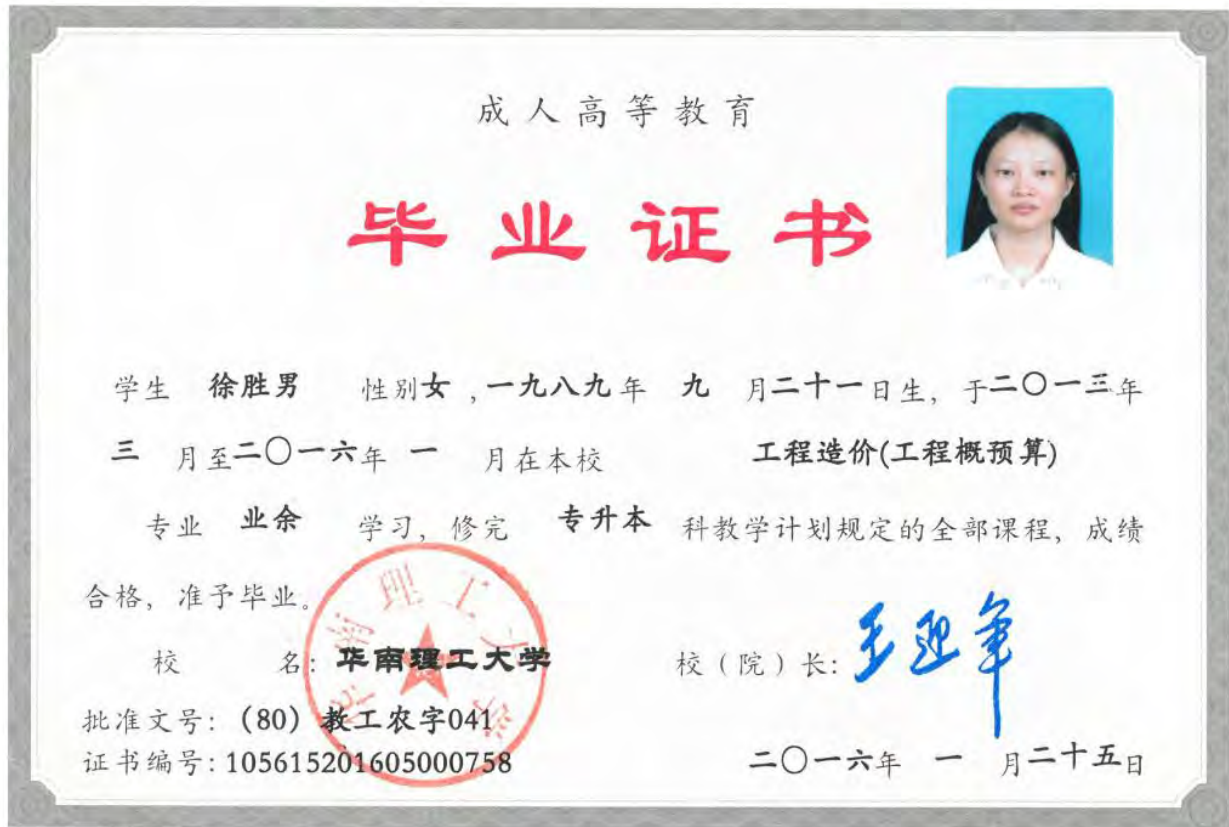 成人高等教育
毕业证书
学生 徐胜男 性别女,一九八九年 九 月二十一日生, 于二〇一三年
三 月至二〇一六年 一 月在本校 工程造价(工程概预算)
专业 业余 学习, 修完 专升本 科教学计划规定的全部课程, 成绩
合格, 准予毕业。
校 名: 华南理工大学
校（院）长: 王迎军
批准文号: (80) 教工农字041
证书编号: 105615201605000758
二〇一六年 一 月二十五日
华南理工大学